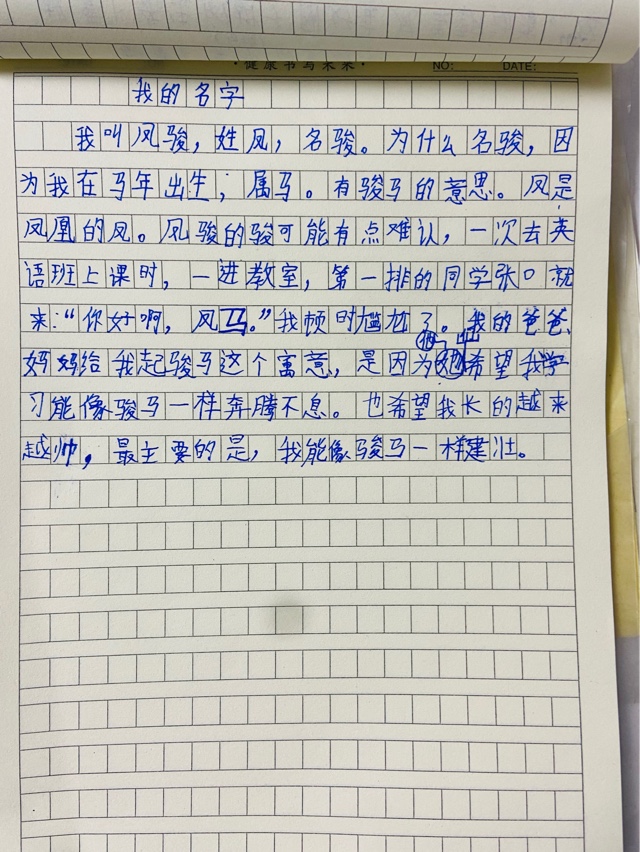 ·健康书写未来·
NO:        DATE:
我的名字
我叫凤骏，姓凤，名骏。为什么名骏，因
为我在马年出生，属马。有骏马的意思。凤是
凤凰的凤。凤骏的骏可能有点难认，一次去英
语班上课时，一进教室，第一排的同学张口就
来：“你好啊，凤马。”我顿时尴尬了。我的爸爸、
妈妈给我起骏马这个寓意，是因为他们希望我学
习能像骏马一样奔腾不息。也希望我长的越来
越帅，最主要的是，我能像骏马一样建壮。